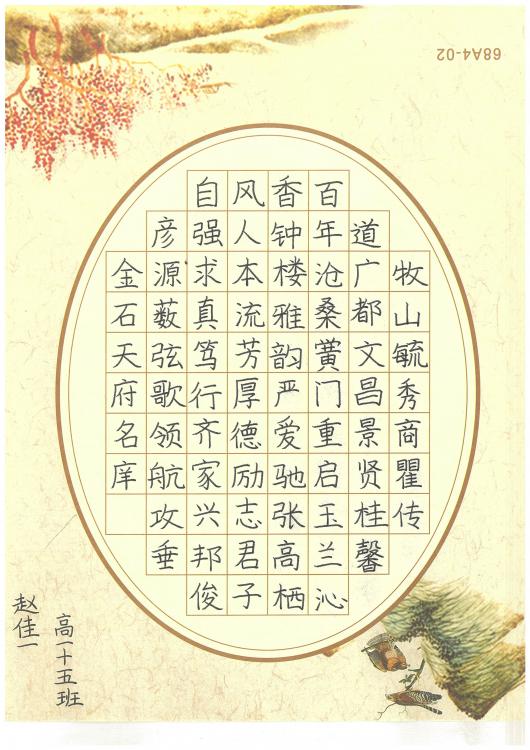 68A4-02
牧山毓秀商瞿传
道广都文昌景贤桂馨
百年沧桑黉门重启玉兰沁
香钟楼雅韵严爱驰张高栖
风人本流芳厚德励志君子
自强求真笃行齐家兴邦俊
彦源薮弦歌领航攻垂
金石天府名庠
高一十五班
赵佳一